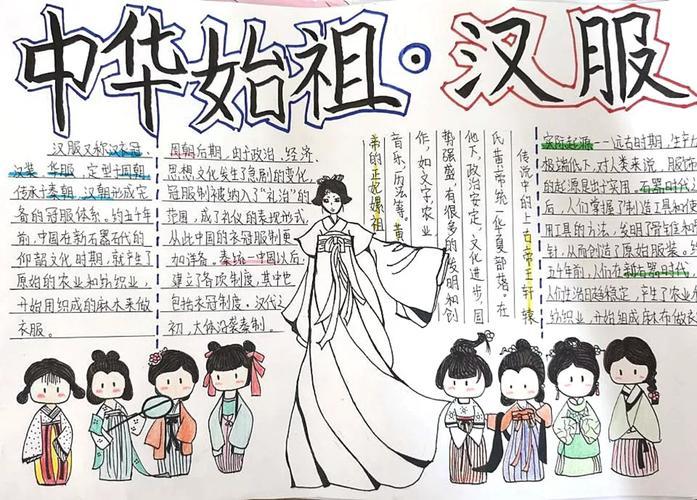 中华始祖·汉服
汉服又称汉衣冠、
汉装、华服，定型于周朝
传承于秦朝，汉朝形成完
备的冠服体系。约五千年
前，中国在新石器时代的
仰韶文化时期，就产生了
原始的农业和纺织业，
开始用织成的麻木来做
衣服。
周朝后期，由于政治、经济、
思想文化发生了急剧的变化，
冠服制被纳入了“礼治”的
范围，成了礼仪的表现形式，
从此中国的衣冠服制更
加详备。秦统一中国以后，
建立了各项制度，其中也
包括衣冠制度。汉代之
初，大体沿袭秦制。
传说中的上古帝王轩辕
氏黄帝统一华夏部落。在
他下，政治安定，文化进步，国
势强盛，有很多的发明和创
作，如文字、农业
音乐、历法等。黄
帝的正妃嫘祖
实际起源——远古时期，生产
极端低下，对人类来说，服饰
的起源是出于实用。石器时代
后，人们掌握了制造工具和使
用工具的方法，发明了骨锥和
针，从而创造了原始服装。
五千年前，人们在新石器时代
人们生活日趋稳定，产生了农业
纺织业，开始组成麻布做衣